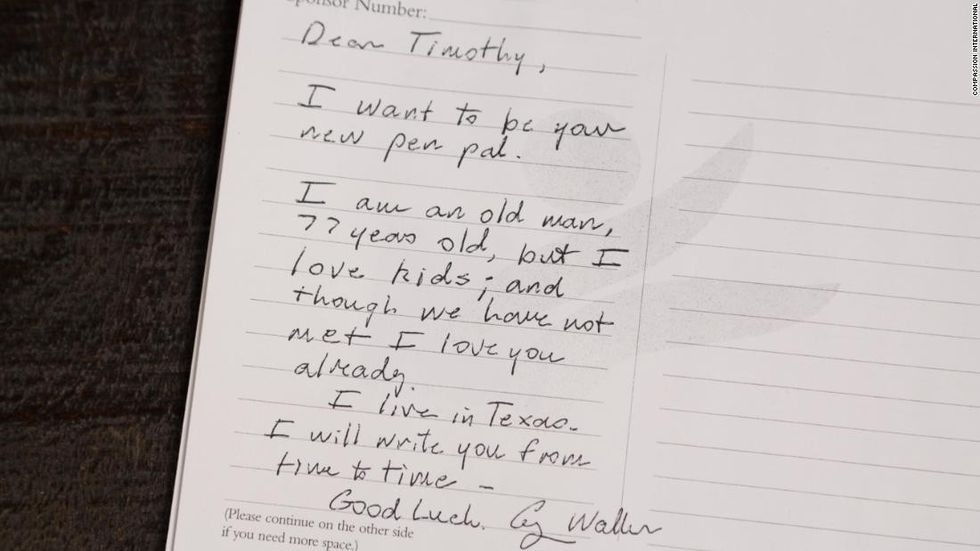 Sponsor Number:
Dear Timothy,
I want to be your
new pen pal.
I am an old man,
77 years old, but I
love kids; and
though we have not
met I love you
already.
I live in Texas.
I will write you from
time to time -
Good Luck. G. Walker
(Please continue on the other side
if you need more space.)
COMPASSION INTERNATIONAL